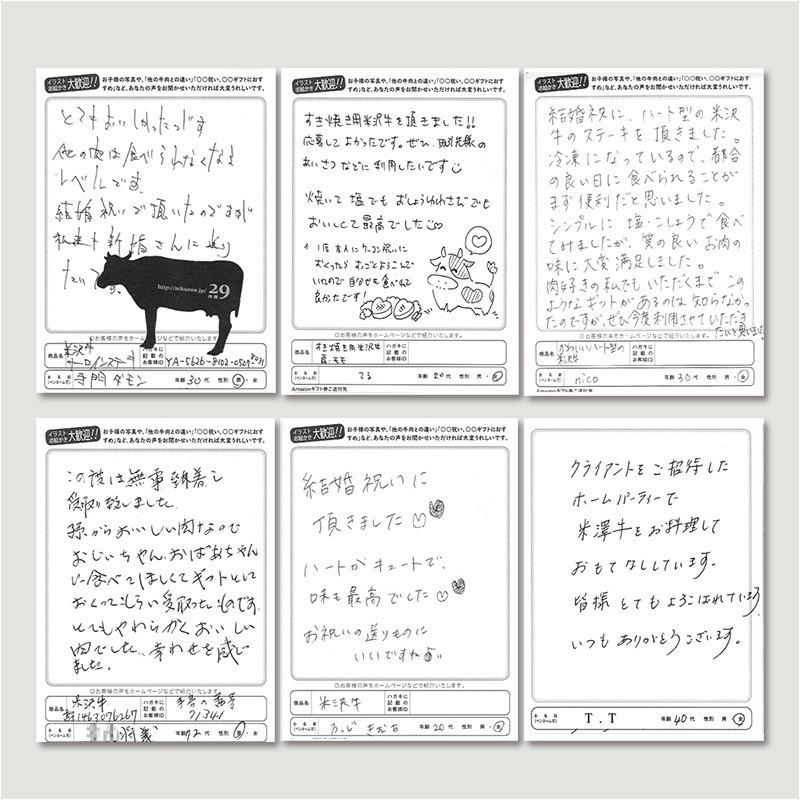 イラスト お絵かき 大歓迎!!
お子様の写真や、「他の牛肉との違い」「〇〇祝い、〇〇ギフトにおすすめ」など、あなたの声をお聞かせいただければ大変うれしいです。
とてもおいしかったです
他の肉は食べられなくなる
レベルです。
結婚祝いで頂いたのですが
私達も新婚さんに送り
たいです。
http://nikuzou.jp/ 29
◎お客様の声をホームページなどで紹介いたします。
商品名 米沢牛
サーロインステーキ
ハガキに記載のお客様ID YA-5626-8102-0529
お名前(ペンネーム可) 寺門ダモン 年齢 30代 性別 男・女
イラスト お絵かき 大歓迎!!
お子様の写真や、「他の牛肉との違い」「〇〇祝い、〇〇ギフトにおすすめ」など、あなたの声をお聞かせいただければ大変うれしいです。
すき焼き用米沢牛を頂きました!!
応募してよかったです。ぜひ、取引先様の
あいさつなどに利用したいです
焼いて塩でもおしょうゆわさびでも
おいしくて最高でした
1度友人にケッコン祝いに
おくったらすごとよろこんで
いたので自分も食べれて
良かったです!
◎お客様の声をホームページなどで紹介いたします。
商品名 すき焼き用米沢牛
肩・モモ
ハガキに記載のお客様ID
お名前(ペンネーム可) てる 年齢 20代 性別 男・女
Amazonギフト券ご送付先
イラスト お絵かき 大歓迎!!
お子様の写真や、「他の牛肉との違い」「〇〇祝い、〇〇ギフトにおすすめ」など、あなたの声をお聞かせいただければ大変うれしいです。
結婚祝に、ハート型の米沢
牛のステーキを頂きました。
冷凍になっているので、都合
の良い日に食べられることが
まず便利だと思いました。
シンプルに塩・こしょうで食べ
てみましたが、質の良いお肉の
味に大変満足しました。
肉好きの私でもいただくまでこの
ようなギフトがあるのは知らなかっ
たのですが、ぜひ今度利用させていただき
たいと思いました。
◎お客様の声をホームページなどで紹介いたします。
商品名 かわいいハート型の
米沢牛
ハガキに記載のお客様ID
お名前(ペンネーム可) nico 年齢 30代 性別 男・女
イラスト お絵かき 大歓迎!!
お子様の写真や、「他の牛肉との違い」「〇〇祝い、〇〇ギフトにおすすめ」など、あなたの声をお聞かせいただければ大変うれしいです。
この度は無事到着し
受取り致しました。
孫からおいしい肉なので
おじいちゃん、おばあちゃん
に食べてほしくてギフトとして
おくってもらい受取ったものです。
とてもやわらかくおいしい
肉でした。幸わせを感じ
ました。
◎お客様の声をホームページなどで紹介いたします。
商品名 米沢牛
ハガキに記載のお客様ID
71341
お名前(ペンネーム可) 年齢 72代 性別 男・女
イラスト お絵かき 大歓迎!!
お子様の写真や、「他の牛肉との違い」「〇〇祝い、〇〇ギフトにおすすめ」など、あなたの声をお聞かせいただければ大変うれしいです。
結婚祝いに
頂きました♡
ハートがキュートで、
味も最高でした♡
お祝いの送りものに
いいですね
◎お客様の声をホームページなどで紹介いたします。
商品名 米沢牛
ハガキに記載のお客様ID
お名前(ペンネーム可) 年齢 20代 性別 男・女
クライアントをご招待した
ホームパーティーで
米澤牛をお料理して
おもてなししています。
皆様とてもよろこばれています
いつもありがとうございます。
お名前(ペンネーム可) T.T 年齢 40代 性別 男・女